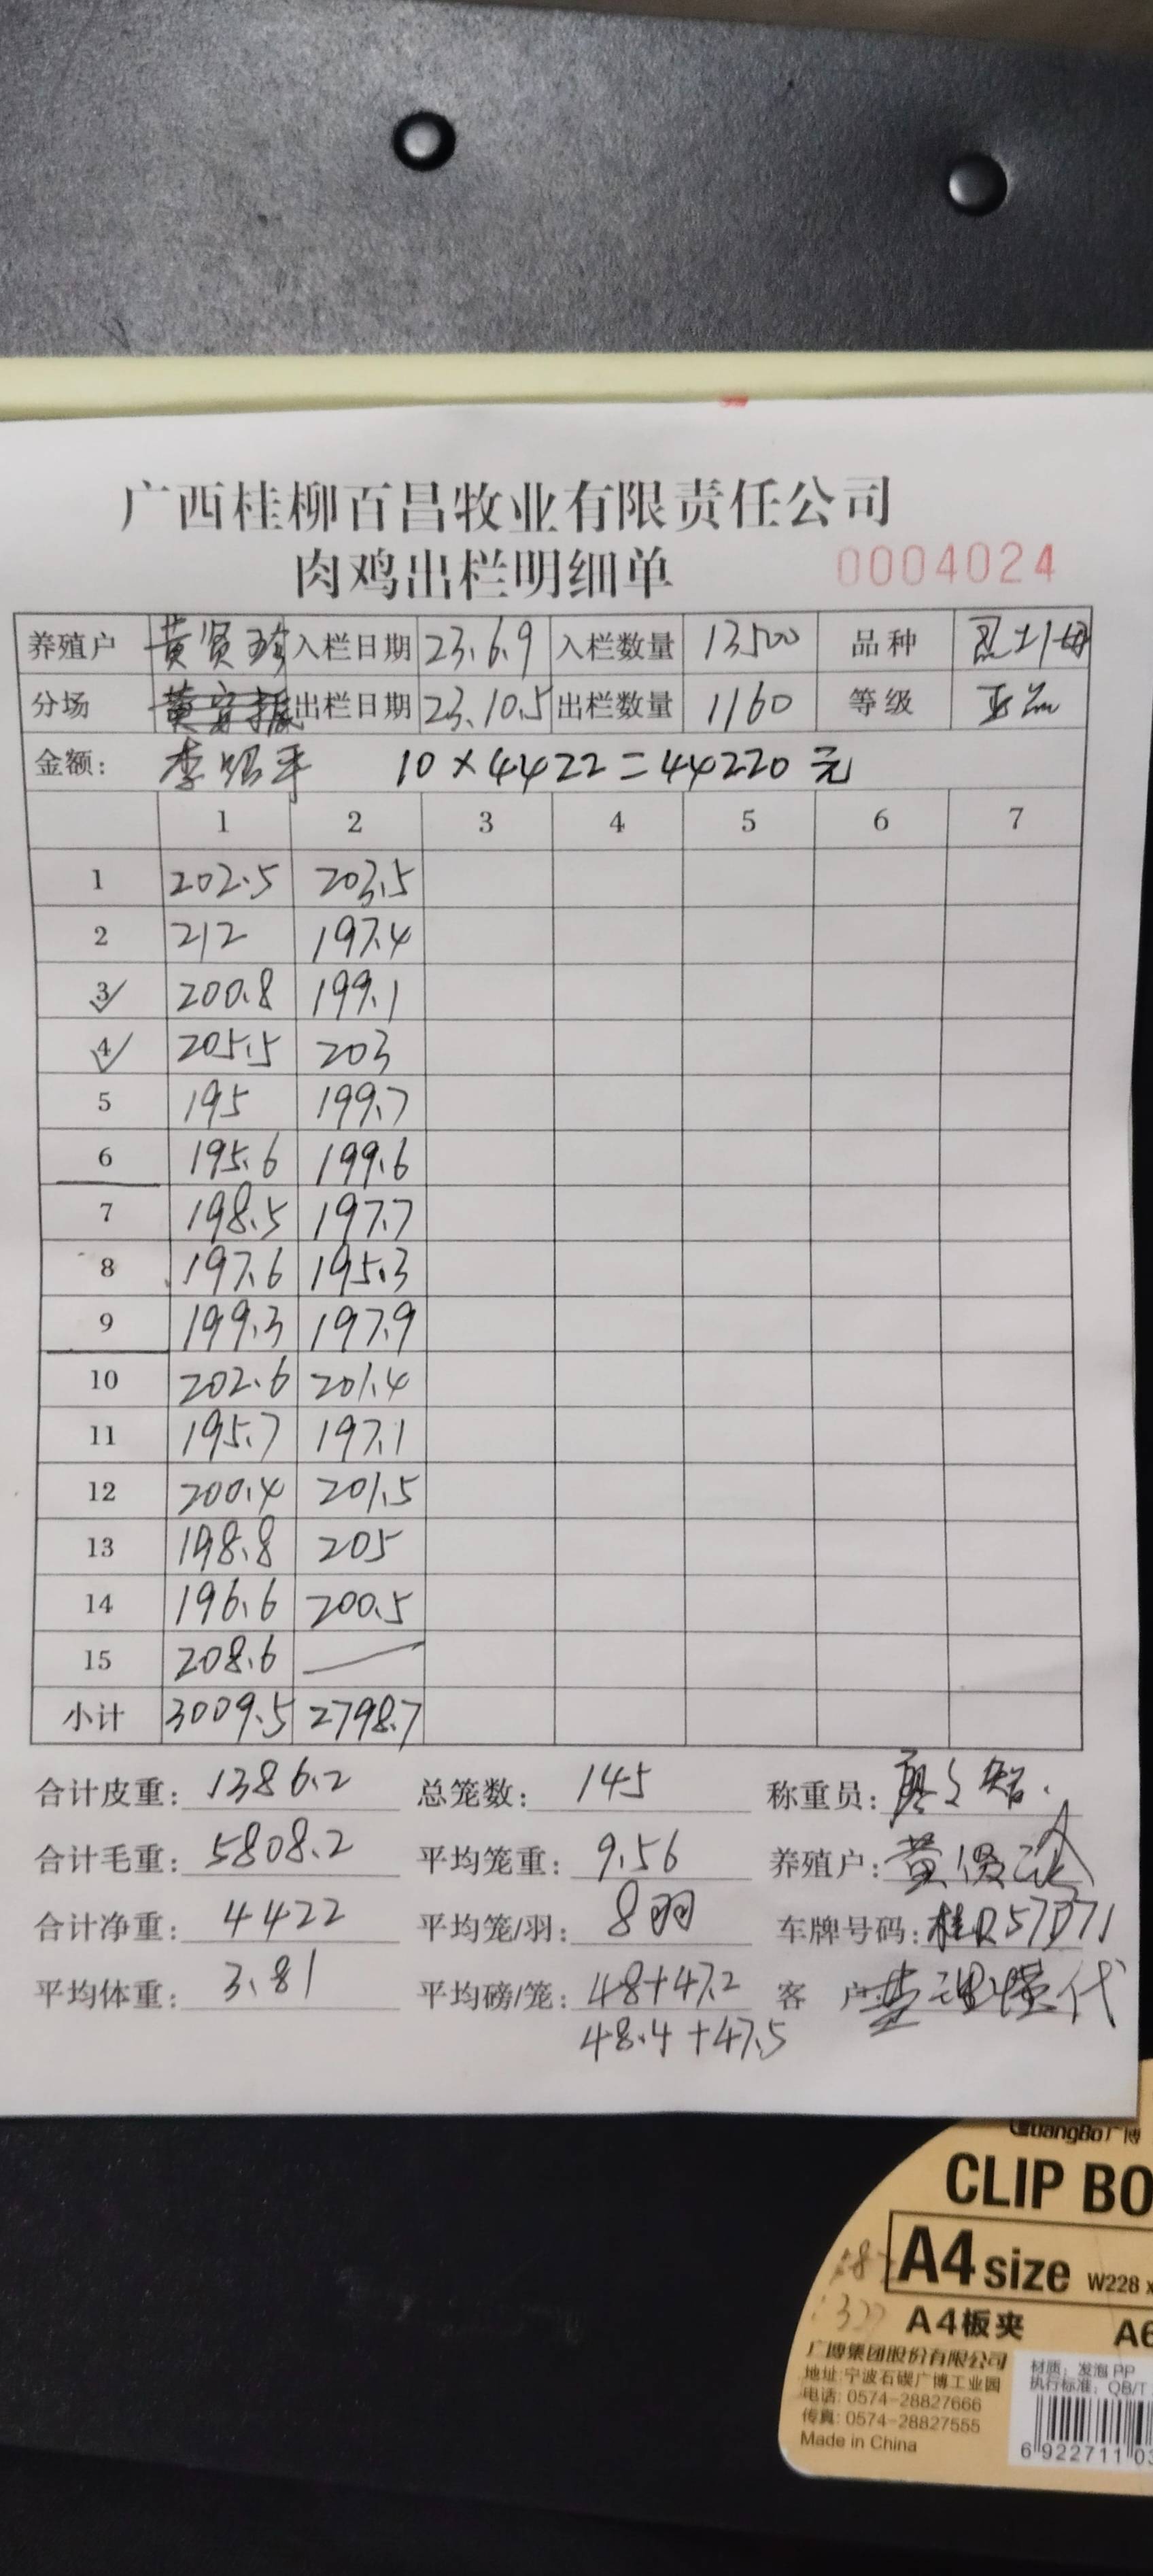 广西桂柳百昌牧业有限责任公司
肉鸡出栏明细单 0004024
养殖户 黄贤珍 入栏日期 23.6.9 入栏数量 13500 品种
分场 出栏日期 23.10.5 出栏数量 1160 等级
金额: 10×4422=44220元
1 2 3 4 5 6 7
1 202.5 203.5
2 212 197.4
3 200.8 199.1
4 205.5 203
5 195 199.7
6 195.6 199.6
7 198.5 197.7
8 197.6 195.3
9 199.3 197.9
10 202.6 201.4
11 195.7 197.1
12 200.4 201.5
13 198.8 205
14 196.6 200.5
15 208.6
小计 3009.5 2798.7
合计皮重: 1386.2 总笼数: 145 称重员:
合计毛重: 5808.2 平均笼重: 9.56 养殖户: 黄
合计净重: 4422 平均笼/羽: 8羽 车牌号码: 桂R57D71
平均体重: 3.81 平均磅/笼: 48+47.2 客户 代
48.4+47.5
GuangBo广博
CLIP BO
A4 size W228 x
A4板夹 A6
广博集团股份有限公司
地址:宁波石碶广博工业园
电话: 0574-28827666
传真: 0574-28827555
Made in China
材质: 发泡 PP
执行标准: QB/T
6 922711 03